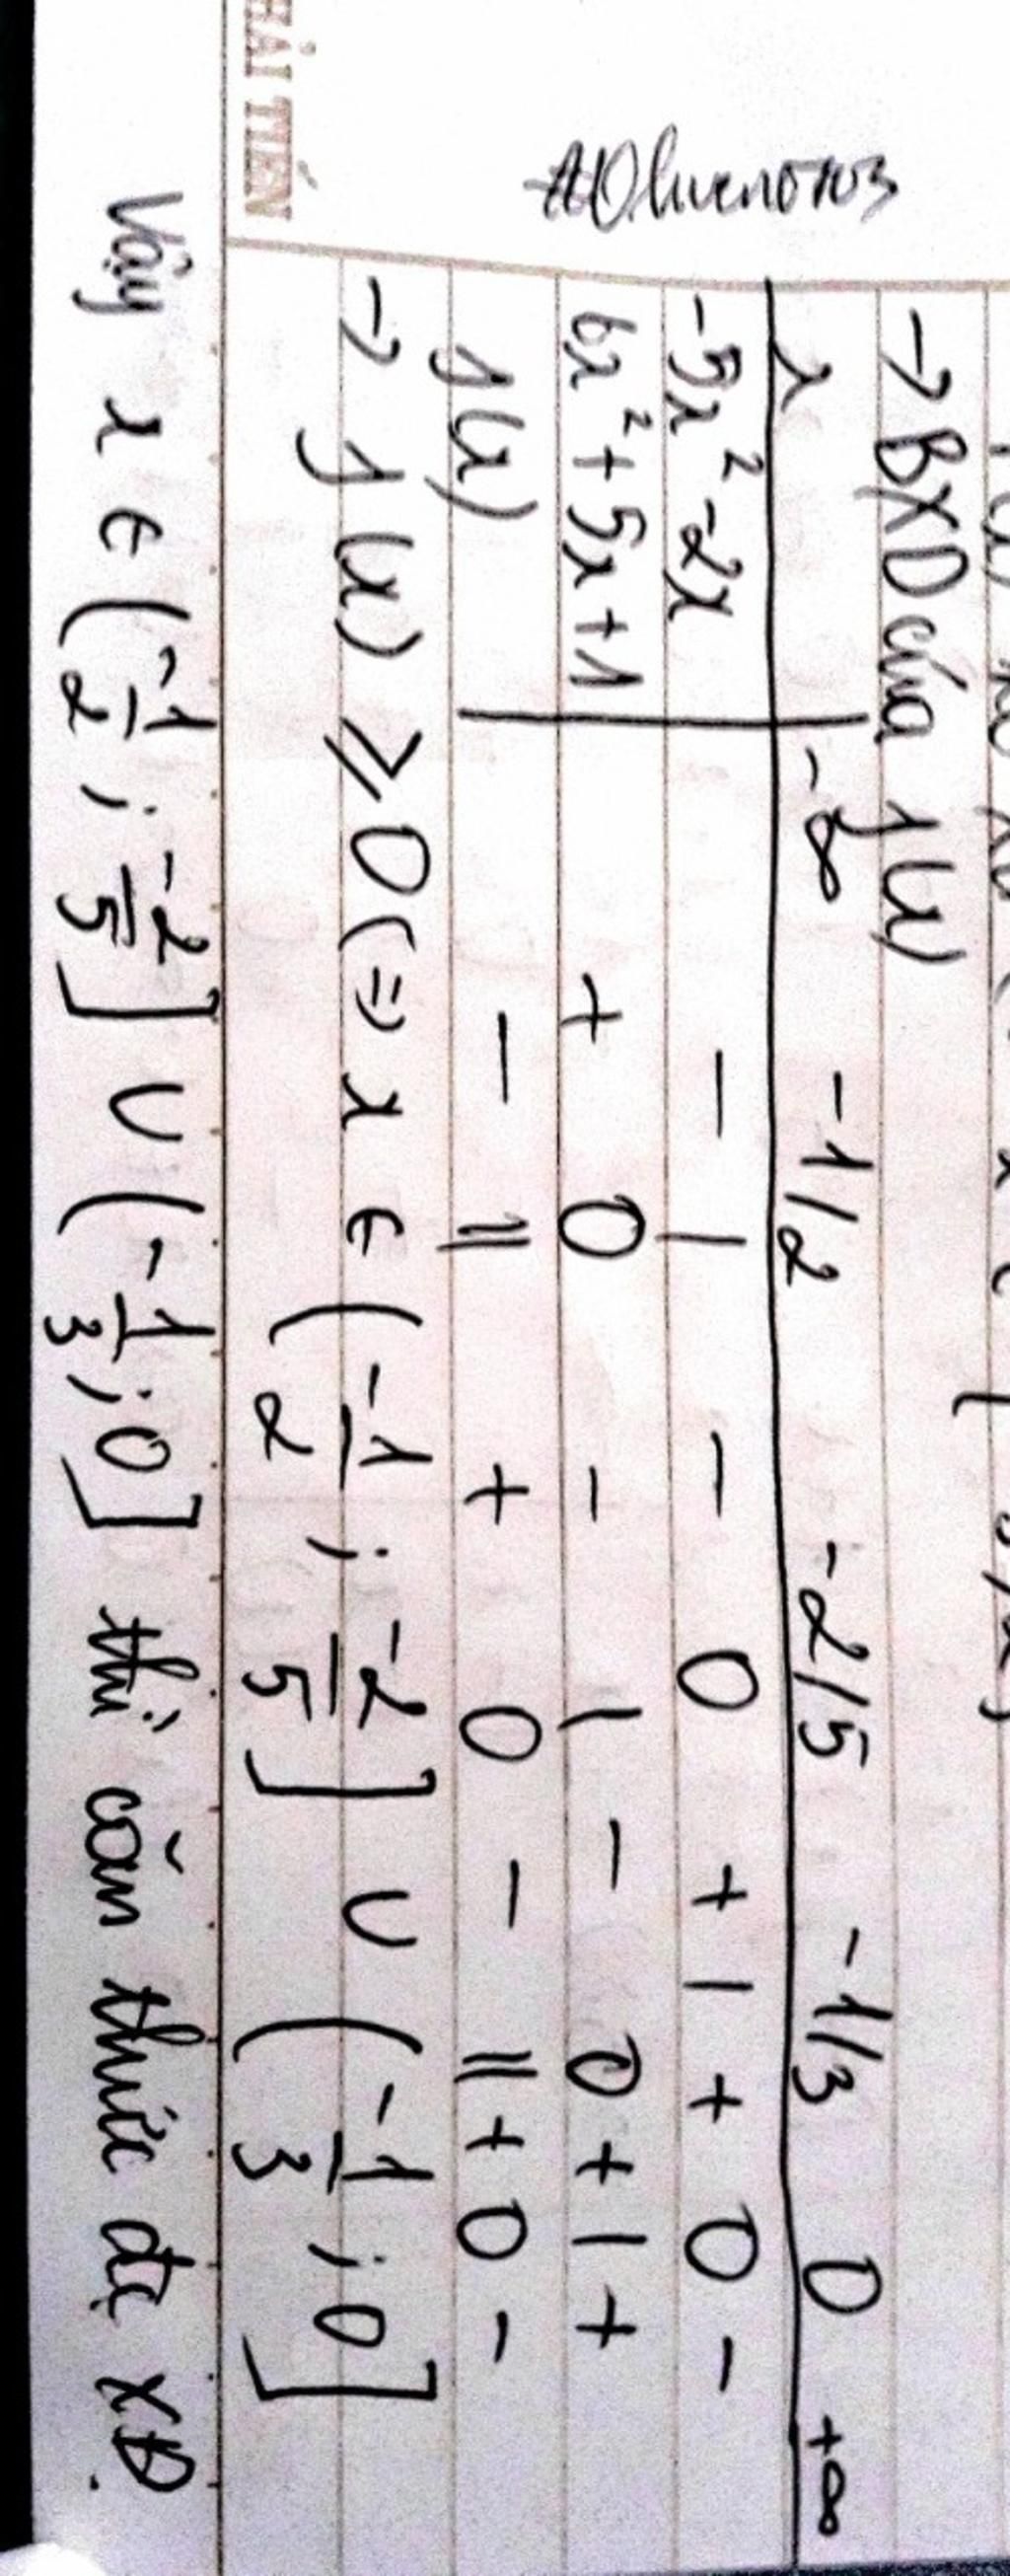 → BXD của f(x)
x -∞ -1/2 -2/5 -1/3 0 +∞
-5x² -2x - | - 0 + | + 0 -
6x² + 5x + 1 + 0 - | - 0 + | +
f(x) - || + 0 - || + 0 -
→ f(x) ⩾ 0 (=> x ∈ (-1/2 ; -2/5] ∪ (-1/3 ; 0]
Vậy x ∈ (-1/2 ; -2/5] ∪ (-1/3 ; 0] thì căn thức đc XĐ.
HẢI TIẾN